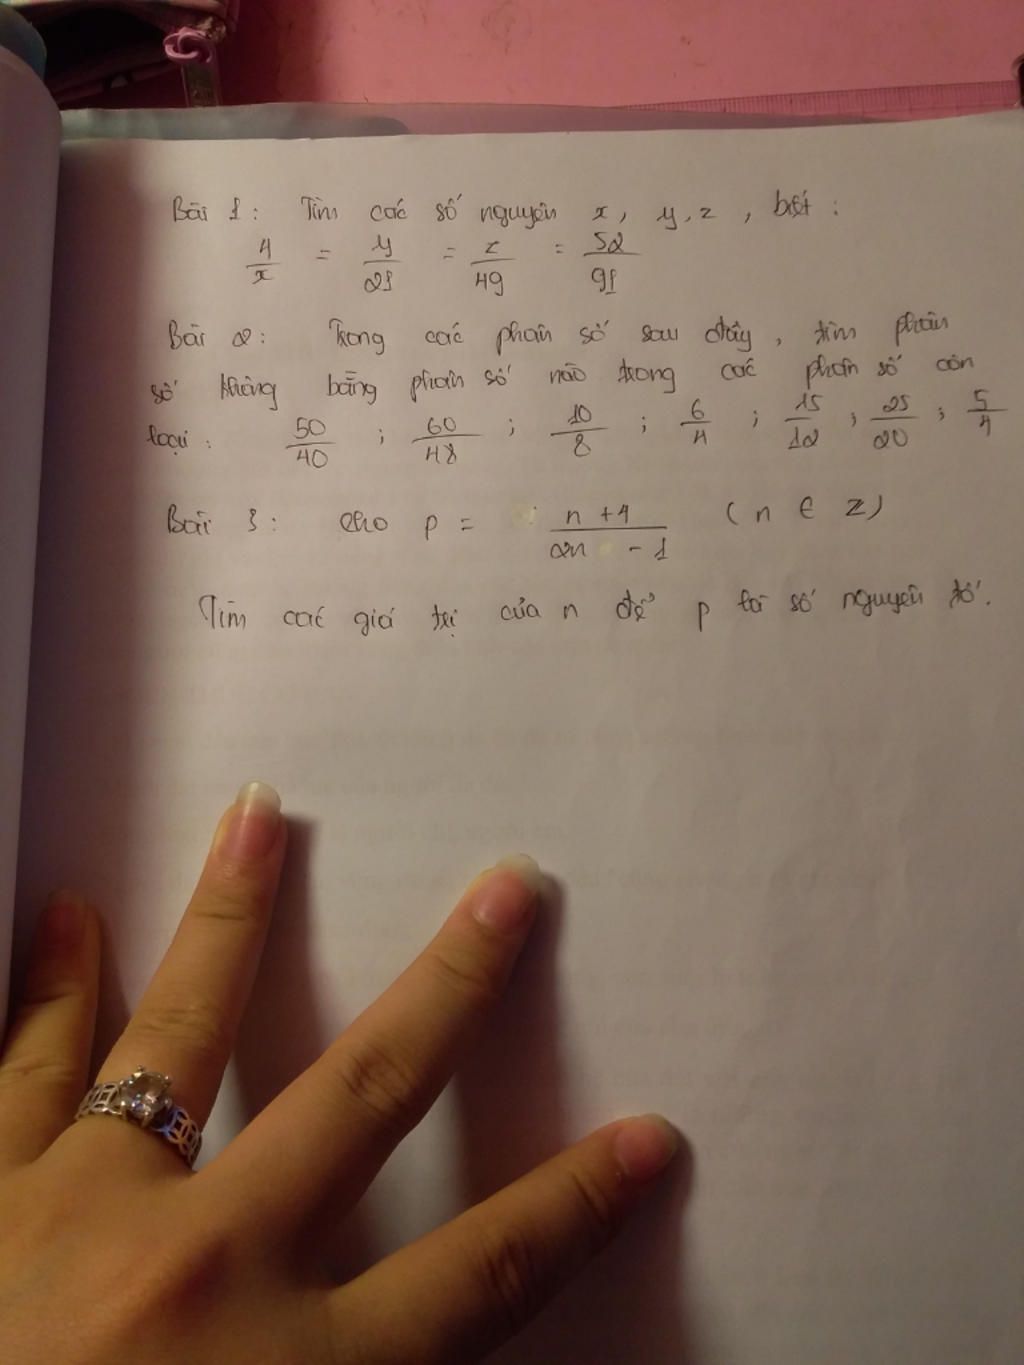 Bài 1: Tìm các số nguyên x, y, z, biết:
4/x = y/21 = z/49 = 52/91
Bài 2: Trong các phân số sau đây, tìm phân
số không bằng phân số nào trong các phân số còn
loại: 50/40 ; 60/48 ; 10/8 ; 6/4 ; 15/12 ; 25/20 ; 5/4
Bài 3: Cho p = n+4/2n-1 (n ∈ Z)
Tìm các giá trị của n để p là số nguyên tố.